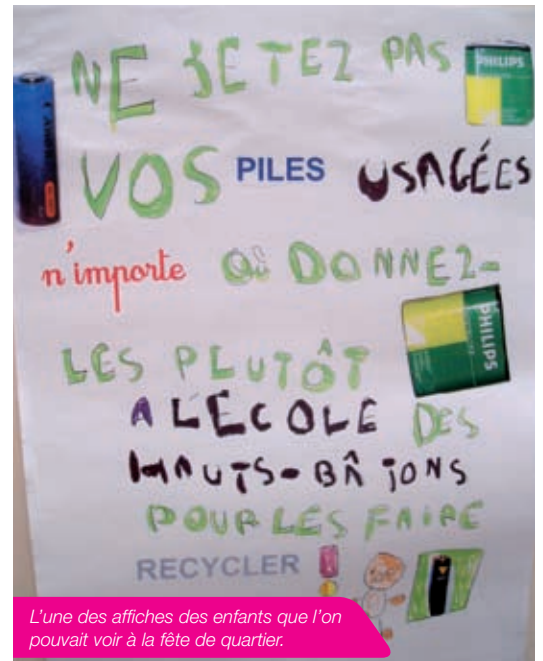 NE JETEZ PAS
PHILIPS
VOS PILES USAGÉES
n'importe Où DONNEZ-
PHILIPS
LES PLUTÔT
A L'ÉCOLE DES
HAUTS-BÂTONS
POUR LES FAIRE
RECYCLER
L'une des affiches des enfants que l'on
pouvait voir à la fête de quartier.